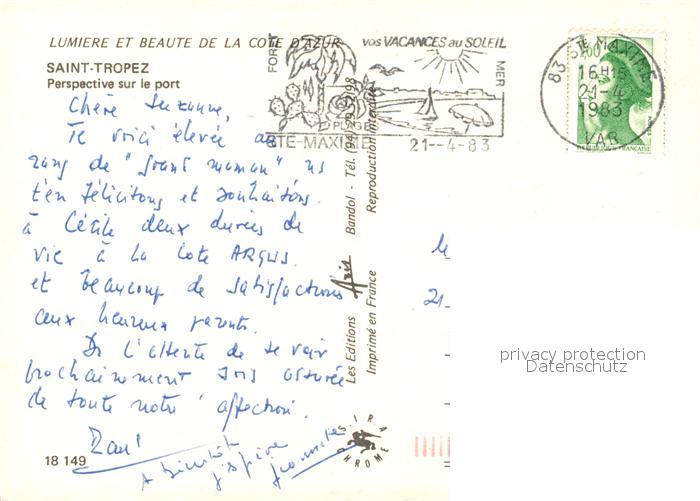 LUMIERE ET BEAUTE DE LA COTE D'AZUR
SAINT-TROPEZ
Perspective sur le port
Chère Suzanne,
Te voici élevée au
rang de "grand maman" ns
t'en félicitons et souhaitons
à Cécile deux durées de
vie à la cote ARGUS.
et beaucoup de satisfactions
aux heureux parents.
Ds l'attente de te voir
prochainement sois assurée
de toute notre affection.
A bientôt
j'espère
18 149
FORET
vos VACANCES au SOLEIL
MER
PLAGE
STE-MAXIME
21--4-83
83 STE MAXIME
16H15
21-4
1983
VAR
1,60
Les Editions Axis Bandol - Tél. (94)
Imprimé en France Reproduction interdite
SIRA
CHROME
le
21
privacy protection
Datenschutz